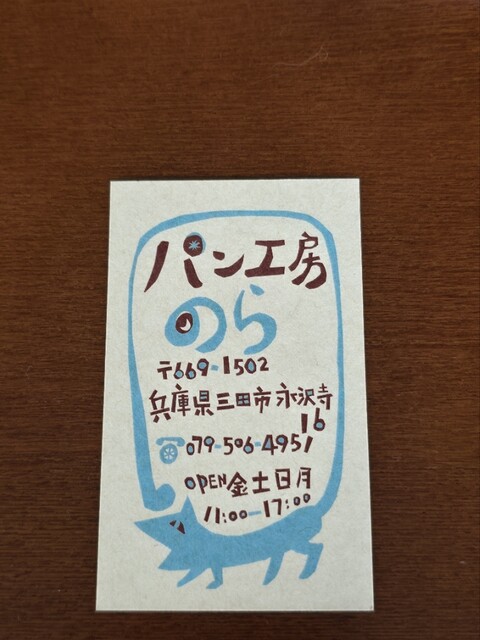 パン工房
のら
〒669-1502
兵庫県三田市永沢寺
16
☎079-506-4951
OPEN金土日月
11:00-17:00